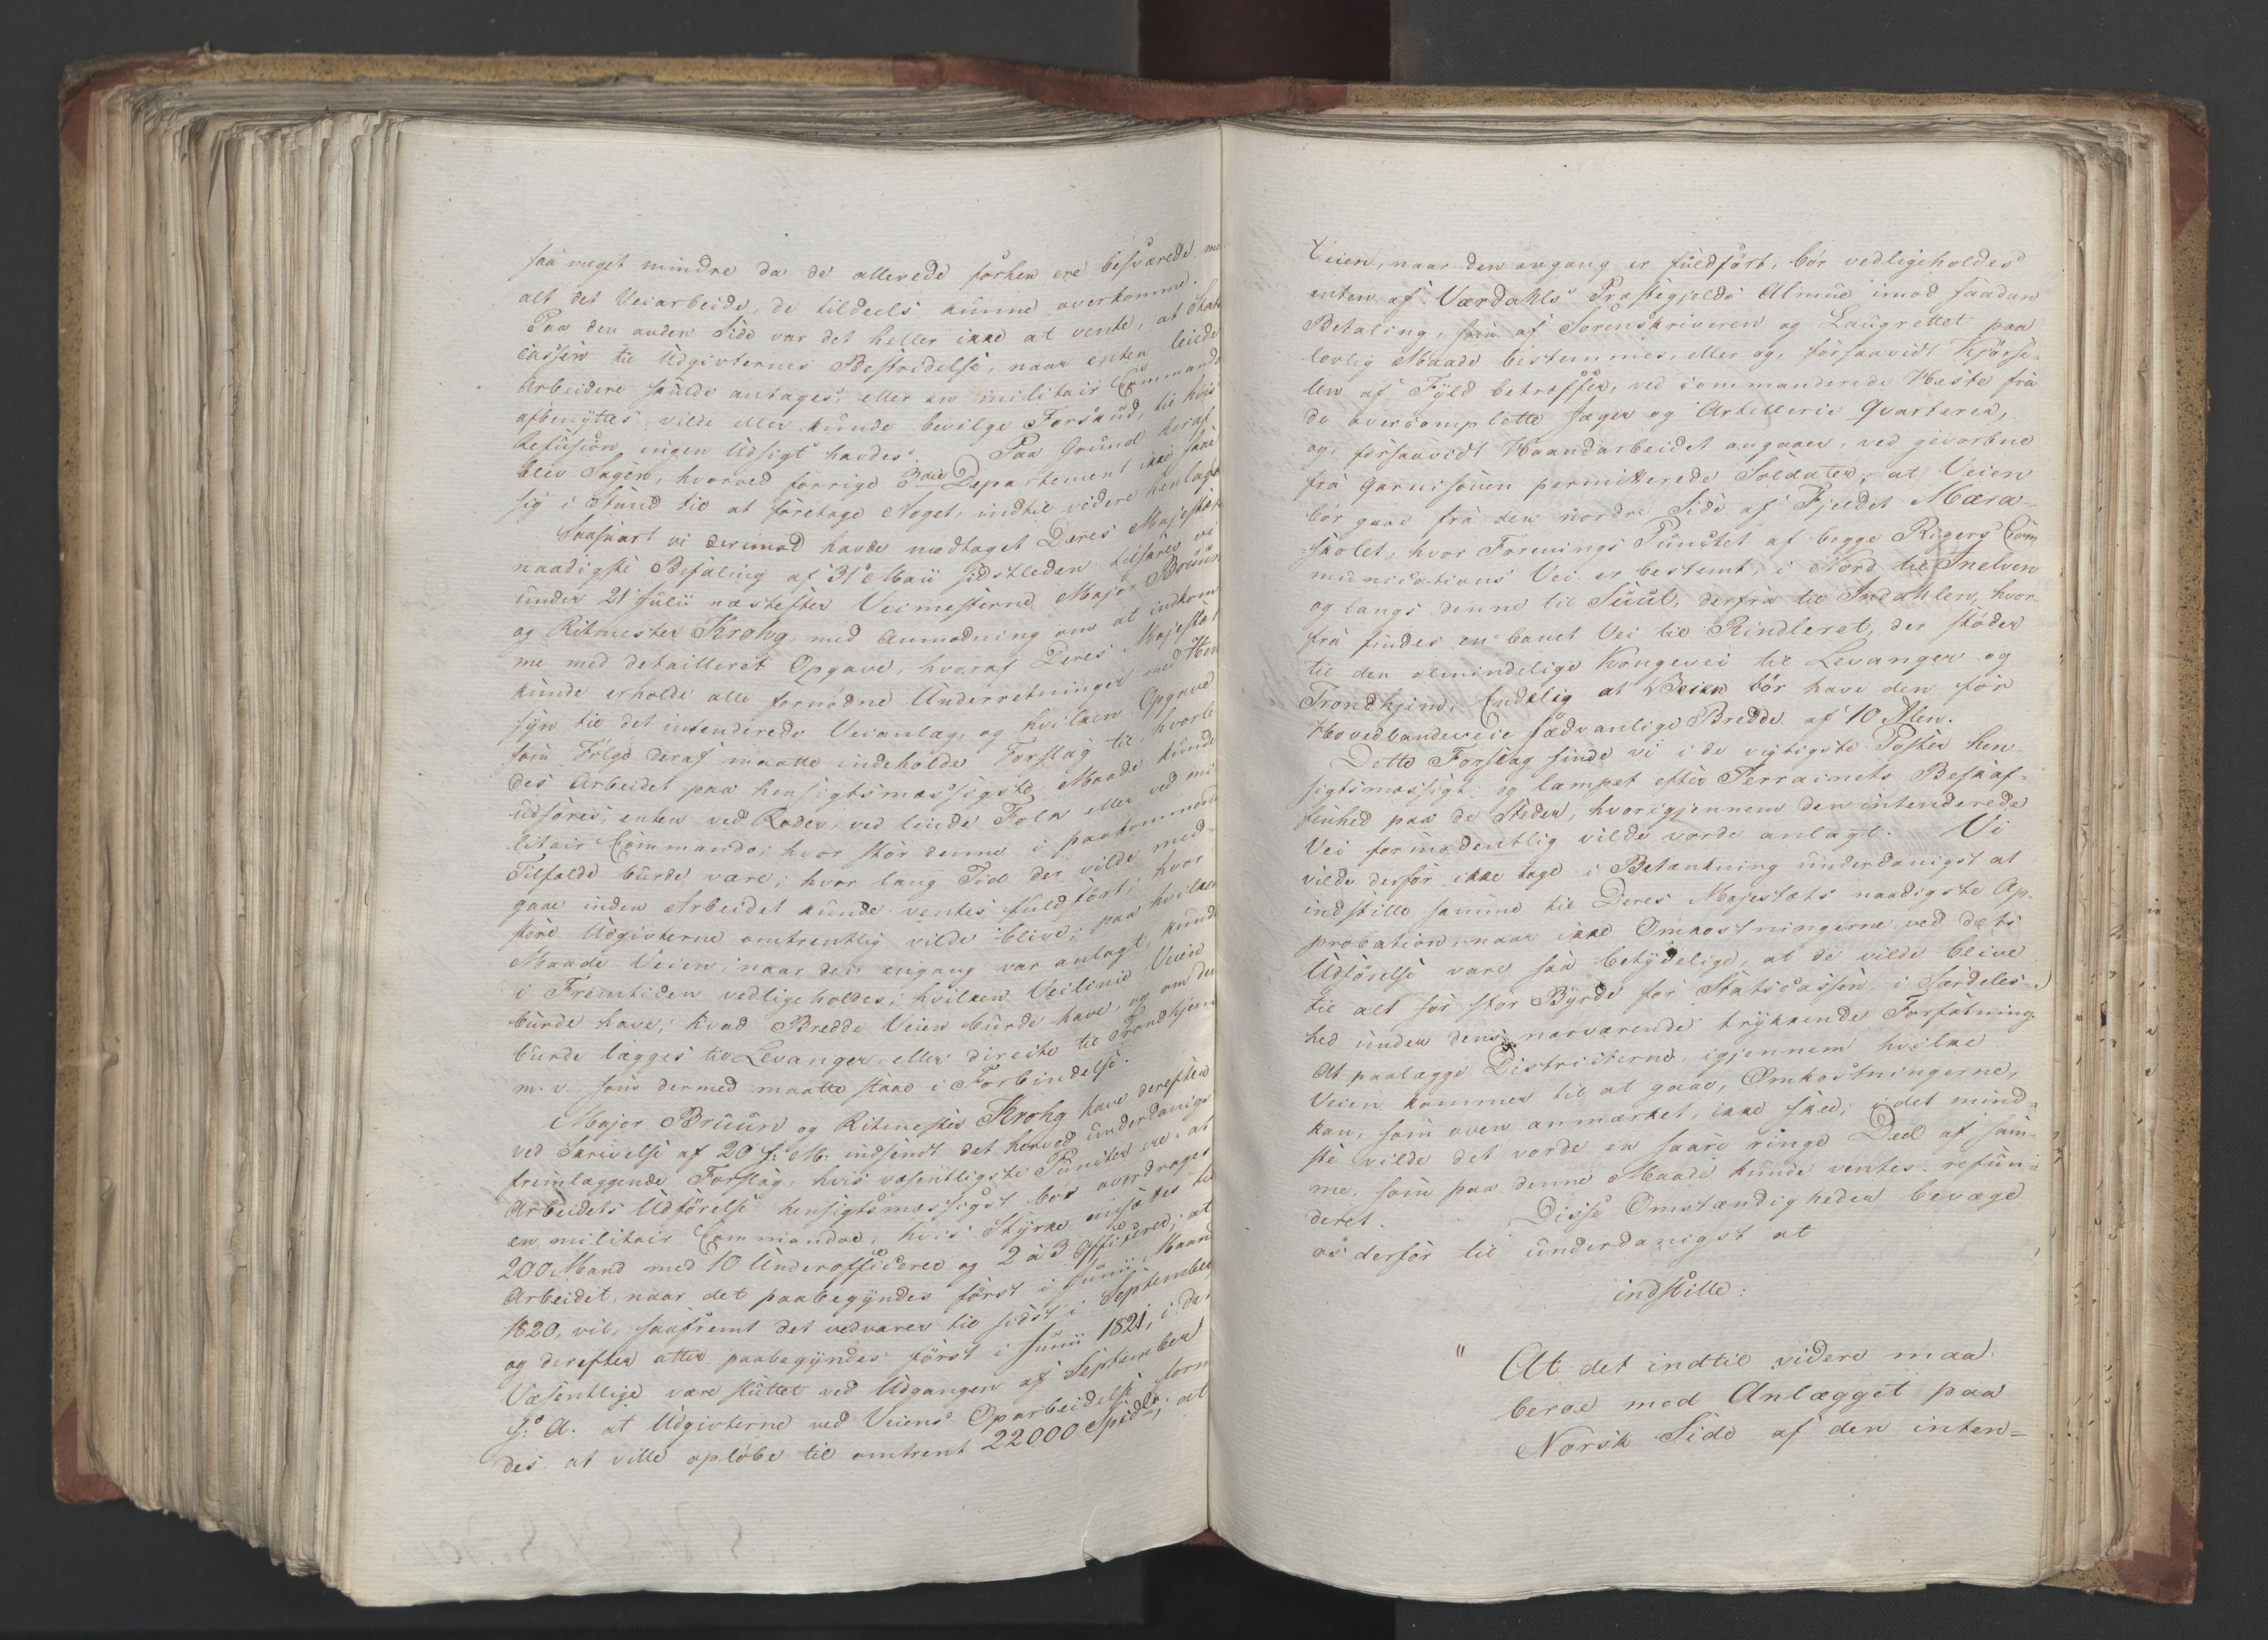 saa meget mindre da de allerede forhen ere besværede me
alt det Veiarbeide, de tildeels kunne overkomme.
Paa den anden Side var det heller ikke at vente, at Stats
cassen til Udgivternes Bestridelse, naar enten leiede
Arbeidere skulde antages, eller en militair Commando
afbenyttes, vilde eller kunde bevilge Forskud, til hvis
Refusion ingen Udsigt havdes. Paa Grund heraf
blev Sagen, hvorved forrige 3die Departement ikke saae
sig i Stand til at foretage Noget, indtil videre henlagt
Saasnart vi derimod havde modtaget Deres Majestæts
naadigste Befaling af 31 Maii sidstleden tilskrev vi
under 21 Julii næstefter Veimesterne Major Bruun
og Ritmester Krohg, med Anmodning om at indkom
me med detailleret Opgave, hvoraf Deres Majestæt
kunde erholde alle fornødne Underretninger med Hen
syn til det intenderede Veianlæg, og hvilken Opgave
som Følge deraf maatte indeholde Forslag til, hvorle
des Arbeidet paa hensigtsmæssigste Maade kunde
udføres, enten ved Roder, ved leiede Folk eller ved mi
litair Commando; hvor stor denne i paakommende
Tilfælde burde være; hvor lang Tid der vilde med-
gaae inden Arbeidet kunde ventes fuldført; hvor
store Udgivterne omtrentlig vilde blive; paa hvilken
Maade Veien, naar den engang var anlagt, kunde
i Fremtiden vedligeholdes; hvilken Veilinie Veien
burde have; hvad Bredde Veien burde have, og om den
burde lægges til Levanger eller directe til Trondhjem
m. v., som dermed maatte staae i Forbindelse.
Major Bruun og Ritmester Krohg have derefter
ved Skrivelse af 20 f: M: indsendt det herved underdanigst
fremlæggende Forslag, hvis væsentligste Puncter ere: at
Arbeidets Udførelse hensigtsmæssigst bør overdrages
en militair Commandoe, hvis Styrke ansættes til
200 Mand med 10 Underofficerer og 2 à 3 Officerer; at
Arbeidet, naar det paabegyndes først i Junii Maaned
1820, vil, saafremt det vedvarer til sidst i September
og derefter atter paabegyndes først i Junii 1821, i det
Væsentlige være sluttet ved Udgangen af September
s: A. at Udgivterne ved Veiens Oparbeidelse form
des at ville opløbe til omtrent 22000 Spdlr; at
Veien, naar den engang er fuldført, bør vedligeholdes
enten af Værdahls Præstegjelds Almue imod saadan
Betaling, som af Sorenskriveren og Laugrettet paa
lovlig Maade bestemmes, eller og, forsaavidt Kjørse-
len af Fyld betræffer, ved commanderede Heste fra
de overcomplette Jæger og Artillerie Qvarterer,
og, forsaavidt Haandarbeidet angaaer, ved gevorbne
fra Garnisonen permitterede Soldater; at Veien
bør gaae fra den nordre Side af Fjeldet Mæra-
skolet, hvor Forenings Punctet af begge Rigers Com
munications Vei er bestemt, i Nord til Inelven
og langs denne til Suul, derfra til Indahlen, hvor-
fra findes en banet Vei til Rindleret, der støder
til den almindelige Kongevei til Levanger og
Trondhjem. Endelig at Veien bør have den for
Hovedlandeveie sædvanlige Bredde af 10 Alen.
Dette Forslag finde vi i de vigtigste Poster hen-
sigtsmæssigt og lempet efter Terrainets Beskaf-
fenhed paa de Steder, hvorigjennem den intenderede
Vei formodentlig vilde vorde anlagt. Vi
vilde derfor ikke tage i Betænkning underdanigst at
indstille samme til Deres Majestæts naadigste Ap-
probation, naar ikke Omkostningerne ved dets
Udførelse vare saa betydelige, at de vilde blive
til alt for stor Byrde for Statscassen, i Særdeles-
hed under dens nærværende trykkende Forfatning.
At paalægge Districterne, igjennem hvilke
Veien kommer til at gaae, Omkostningerne,
kan, som oven anmærket, ikke skee; i det mind-
ste vilde det vorde en saare ringe Deel af sam-
me, som paa denne Maade kunde ventes refun-
deret. Disse Omstændigheder bevæge
os derfor til underdanigst at
indstille:
" At det indtil videre maa
beroe med Anlægget paa
Norsk Side af den inten=